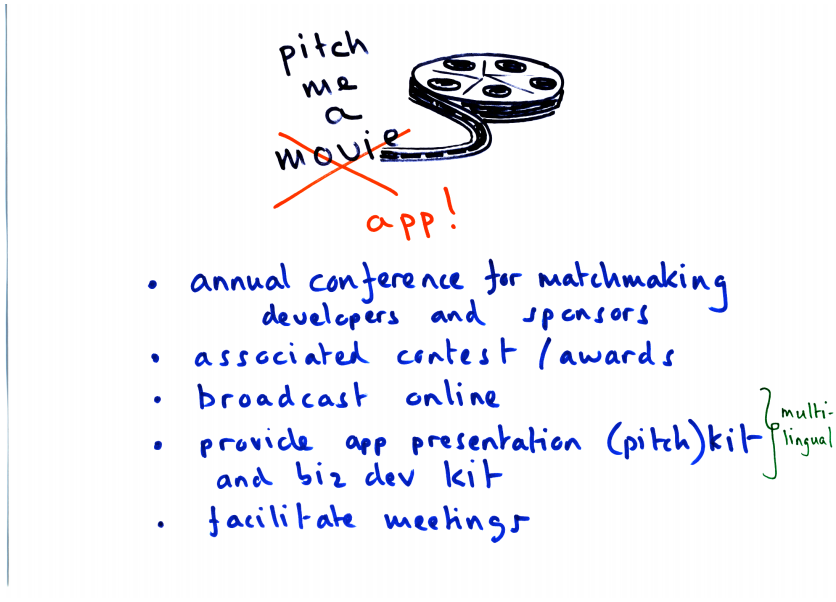 pitch
me
a
movie
app!
• annual conference for matchmaking
developers and sponsors
• associated contest / awards
• broadcast online
• provide app presentation (pitch) kit
and biz dev kit
• facilitate meetings
multi-
lingual